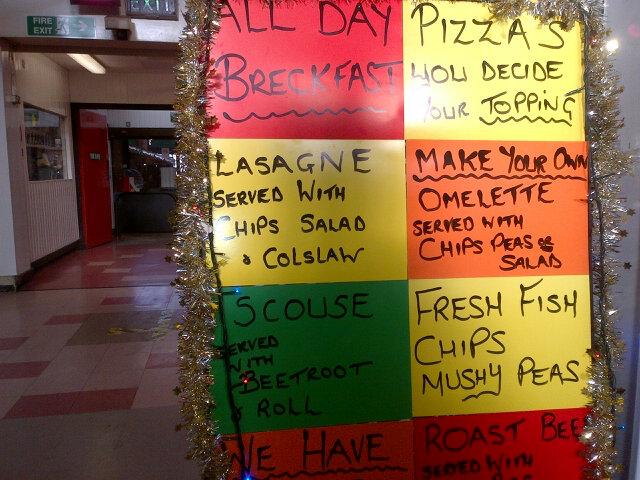 FIRE
EXIT
ALL DAY
BRECKFAST
PIZZAS
YOU DECIDE
YOUR TOPPING
LASAGNE
SERVED WITH
CHIPS SALAD
& COLSLAW
MAKE YOUR OWN
OMELETTE
SERVED WITH
CHIPS PEAS OR
SALAD
SCOUSE
SERVED
WITH
BEETROOT
& ROLL
FRESH FISH
CHIPS
MUSHY PEAS
WE HAVE
ROAST BEEF
SERED WITH